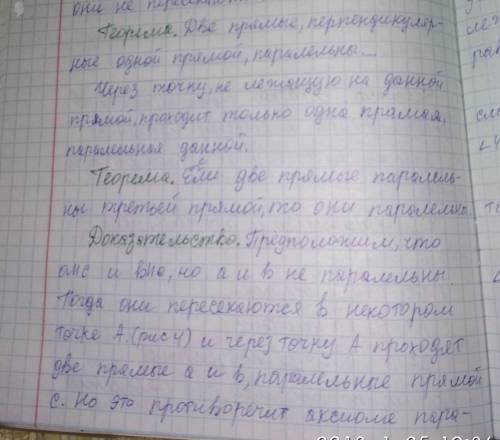 они не пересекаю
Теорема. Две прямые, перпендикуляр-
ные одной прямой, паралельны...
Через точку, не лежащую на данной
прямой, проходит только одна прямая,
паралельная данной.
Теорема. Если две прямые паралель-
ны третьей прямой, то они паралельны.
Доказательство. Предположим, что
а||с и в||с, но а и в не паралельны.
Тогда они пересекаются в некотором
точке А. (рис 4) и через точку А проходят
две прямые а и в, паралельные прямой
с. Но это противоречит аксиоме пара-